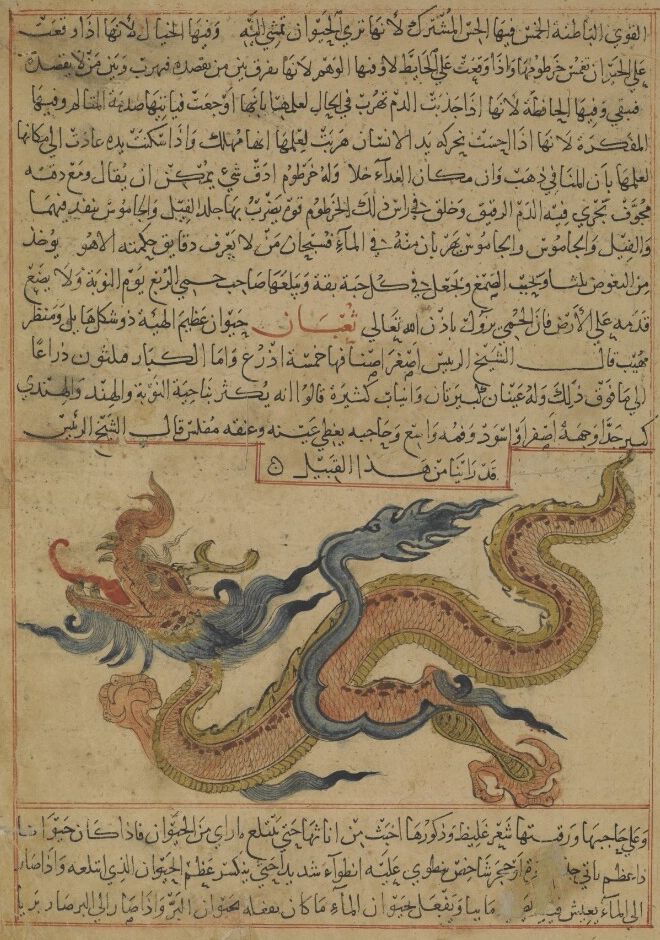 القوي الباطنة الخمس فيها الحس المشترك لانها تري الحيوان تمشي اليه وفيها الخيال لانها اذا وقعت
علي الحيوان تغمس خرطومها واذا وقعت علي الحايط لا وفيها الوهم لانها يفرق بين من يقصده فيهرب وبين من لا يقصده
فيبقي وفيها الحافظة لانها اذا جذبت الدم تهرب في الحال لعلمها بانها اوجعت فياتيها صدمة المتالم وفيها
المفكرة لانها اذا احست بحركة يد الانسان هربت لعلمها انها مهلك واذا سكنت يده عادت الي مكانها
لعلمها بان المنافي ذهب وان مكان الغداء خلا وله خرطوم ادق شيء يمكن ان يقال ومع دقته
مجوف تجري فيه الدم الرقيق وخلق في راس ذلك الخرطوم قوة يضرب بها جلد الفيل والجاموس ينفد فيهما
والفيل والجاموس والجاموس يهربان منه في الماء فسبحان من لا يعرف دقايق حكمته الا هو يوخذ
من البعوض يجعل في كل حبة بقة ويبلعها صاحب حمي الربع يوم النوبة ولا يضع
قدمه علي الارض فان الحمي يزول باذن الله تعالي ثعبان حيوان عظيم الهيئة ذو شكل هايل ومنظر
مهيب قال الشيخ الرييس اصغر اصنافها خمسة اذرع واما الكبار فثلثون ذراعا
الي ما فوق ذلك وله عينان كبيرتان وانياب كثيرة قالوا انه يكثر بناحية النوبة والهند والهندي
كبير جدا وجهة اصفر او اسود وفمه واسع وحاجبه يغطي عينه وعنقه مفلس قال الشيخ الرئيس
قد راينا من هذا القبيل
وعلي حاجبها ورقبتها شعر غليظ وذكورها اخبث من اناثها حتي يبتلع ما راي من الحيوان فاذا كان حيوانا
ذا عظم ياتي او حجر شاخص ينطوي عليه انطواء شديدا حتي ينكسر عظم الحيوان الذي ابتلعه واذا صار
الي الماء يعيش فيه مائيا ويفعل لحيوان الماء ما كان يفعله لحيوان البر واذا صار الي البر صار بريا